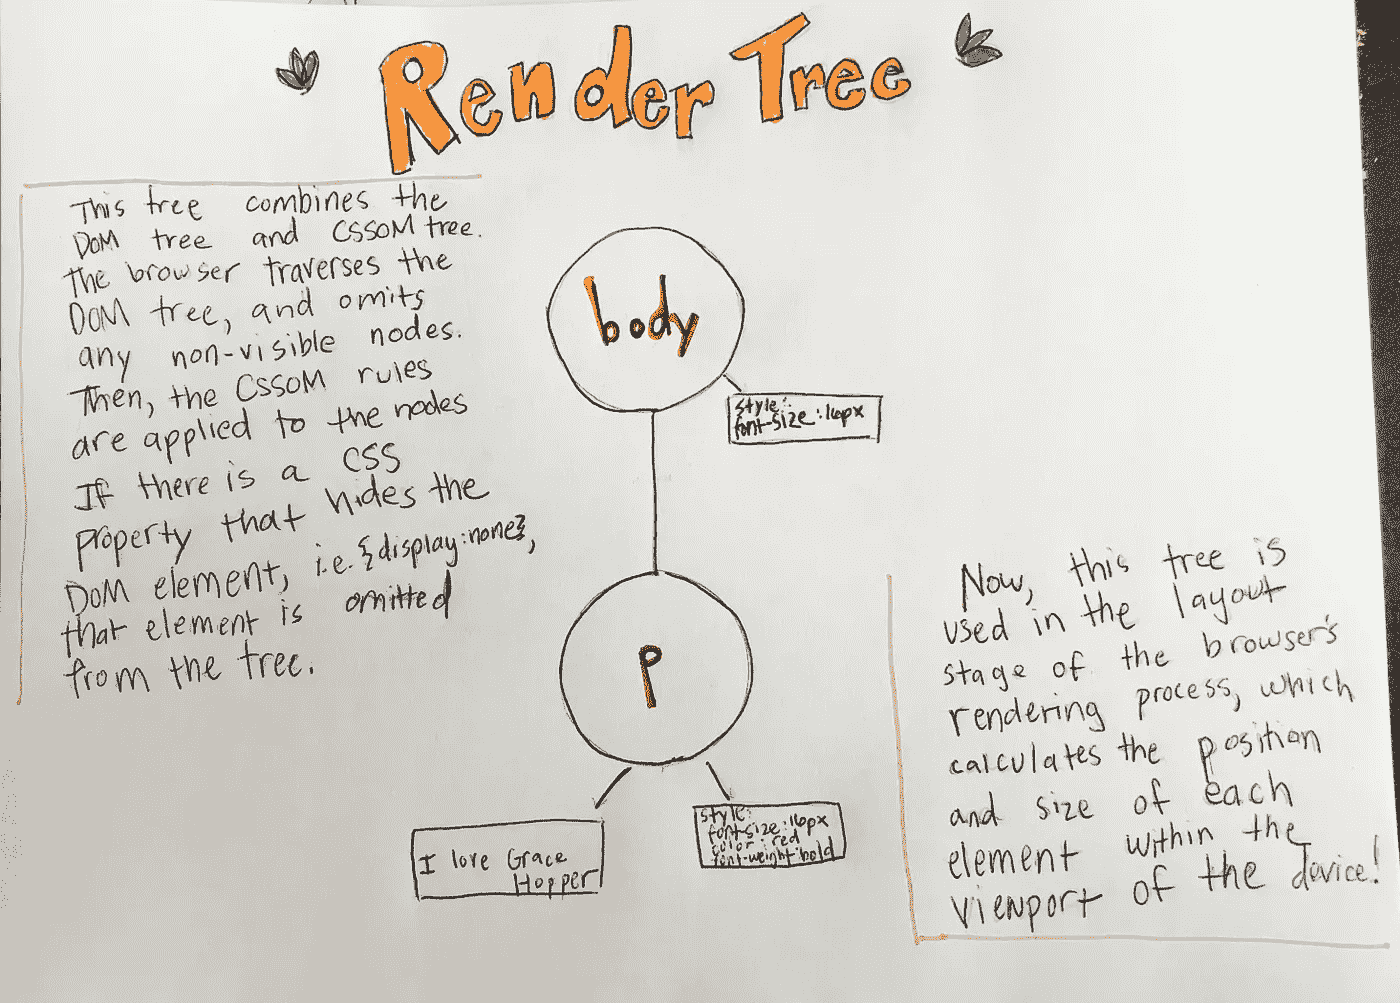 Render Tree
This tree combines the
DOM tree and CSSOM tree.
The browser traverses the
DOM tree, and omits
any non-visible nodes.
Then, the CSSOM rules
are applied to the nodes
If there is a CSS
property that hides the
DOM element, i.e. {display:none},
that element is omitted
from the tree.
body
style:
font-size:16px
p
I love Grace
Hopper
style:
font-size:16px
color:red
font-weight:bold
Now, this tree is
used in the layout
stage of the browser's
rendering process, which
calculates the position
and size of each
element within the
viewport of the device!